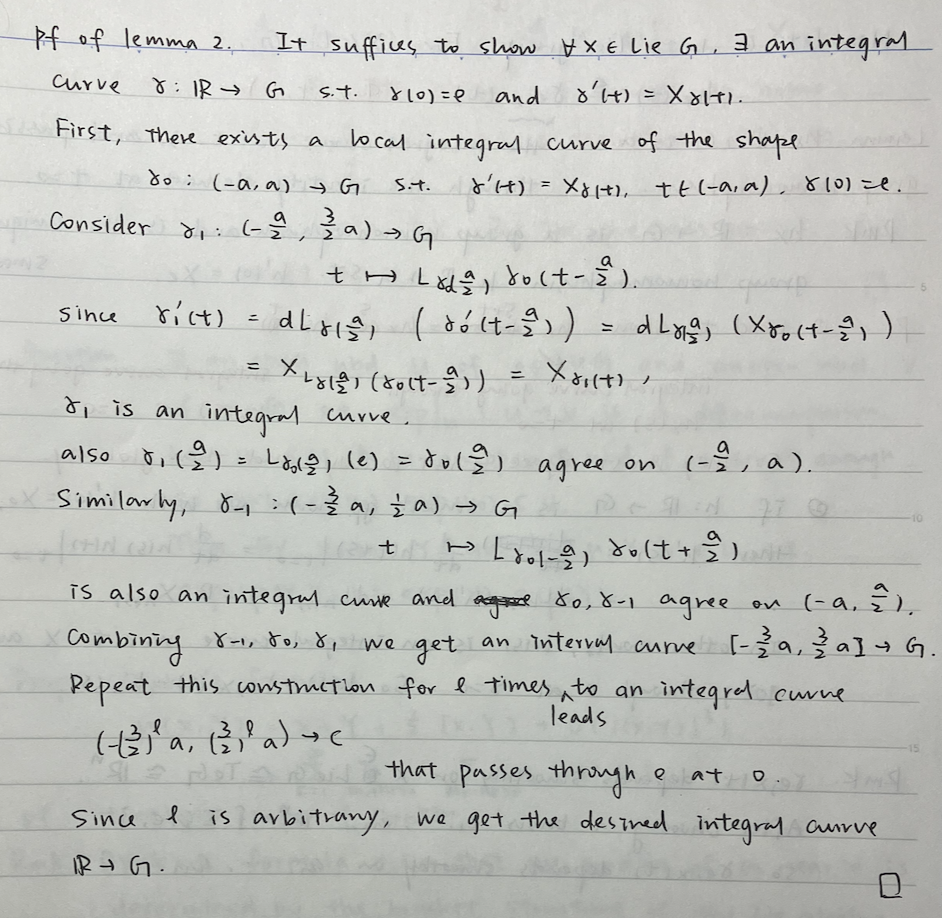 Pf of lemma 2. It suffices to show ∀ X ∈ Lie G, ∃ an integral
curve γ: ℝ → G s.t. γ(0)=e and γ'(t) = X_γ(t).
First, there exists a local integral curve of the shape
γ₀ : (-a, a) → G s.t. γ'(t) = X_γ(t), t ∈ (-a, a), γ(0) = e.
Consider γ₁ : (-a/2, 3/2 a) → G
t ↦ L_γ(a/2) γ₀(t - a/2).
since γ₁'(t) = dL_γ(a/2) (γ₀'(t - a/2)) = dL_γ(a/2) (X_γ₀(t - a/2))
= X_L_γ(a/2)(γ₀(t - a/2)) = X_γ₁(t),
γ₁ is an integral curve.
also γ₁(a/2) = L_γ₀(a/2) (e) = γ₀(a/2) agree on (-a/2, a).
Similarly, γ₋₁ : (-3/2 a, 1/2 a) → G
t ↦ L_γ₀(-a/2) γ₀(t + a/2)
is also an integral curve and γ₀, γ₋₁ agree on (-a, a/2).
Combining γ₋₁, γ₀, γ₁, we get an interval curve [-3/2 a, 3/2 a] → G.
Repeat this construction for l times leads to an integral curve
(-(3/2)^l a, (3/2)^l a) → C
that passes through e at 0.
Since l is arbitrary, we get the desired integral curve
ℝ → G.
□